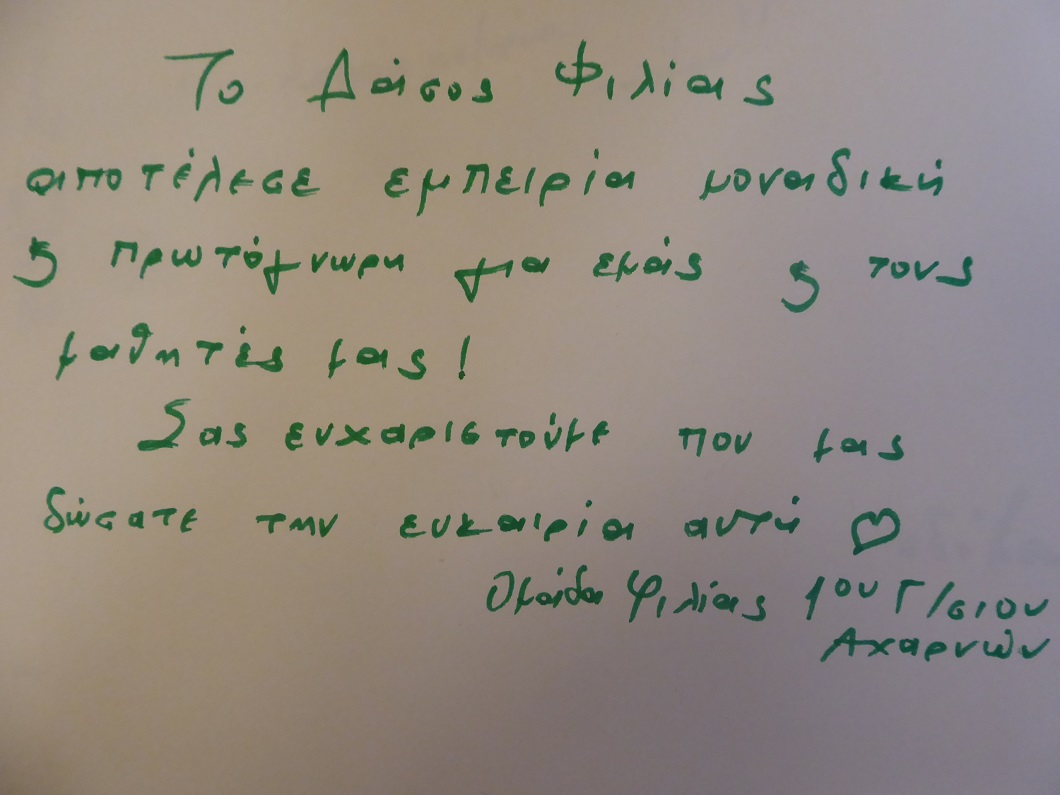 Το Δάσος Φιλίας
αποτέλεσε εμπειρία μοναδική
ϗ πρωτόγνωρη για εμάς ϗ τους
μαθητές μας!
Σας ευχαριστούμε που μας
δώσατε την ευκαιρία αυτή ♡
Ομάδα Φιλίας 1ου Γ/σιου
Αχαρνών